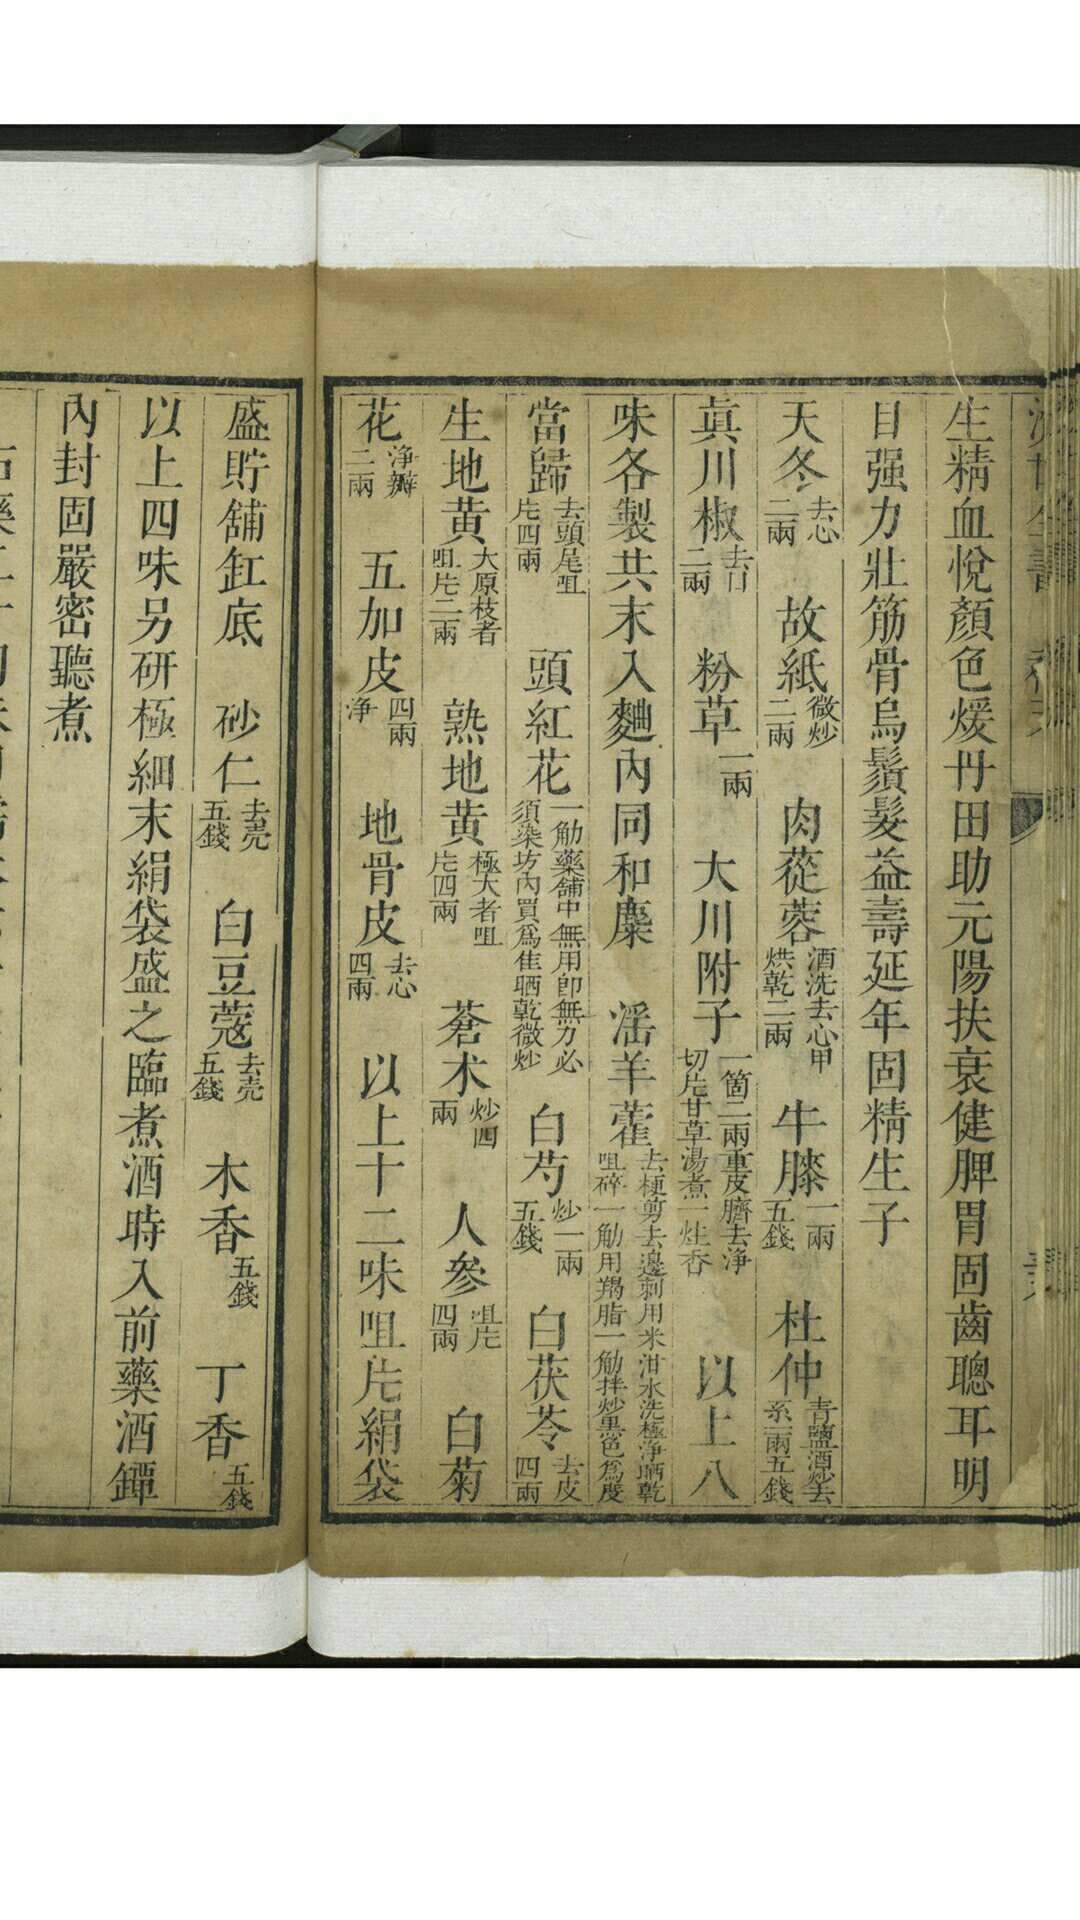 生精血悅顏色煖丹田助元陽扶衰健脾胃固齒聰耳明
目强力壯筋骨烏鬚髮益壽延年固精生子
天冬去心二兩 故紙微炒二兩 肉蓯蓉酒洗去心甲烘乾二兩 牛膝一兩五錢 杜仲青鹽酒炒去系一兩五錢
眞川椒去目二兩 粉草一兩 大川附子一箇二兩重皮臍去淨切片甘草湯煮一炷香 以上八
味各製共末入麯內同和麋 滛羊藿去梗剪去邊刺用米泔水洗極淨晒乾咀碎一觔用羯脂一觔拌炒黑色爲度
當歸去頭尾咀片四兩 頭紅花一觔藥舖中無用卽無力必須染坊內買爲隹晒乾微炒 白芍炒一兩五錢 白茯苓去皮四兩
生地黃大原枝者咀片二兩 熟地黃極大者咀片四兩 蒼术炒四兩 人參咀片四兩 白菊
花淨瓣二兩 五加皮四兩淨 地骨皮去心四兩 以上十二味咀片絹袋
盛貯舖缸底 砂仁去壳五錢 白豆蔻去壳五錢 木香五錢 丁香五錢
以上四味另硏極細末絹袋盛之臨煮酒時入前藥酒罈
內封固嚴密聽煮